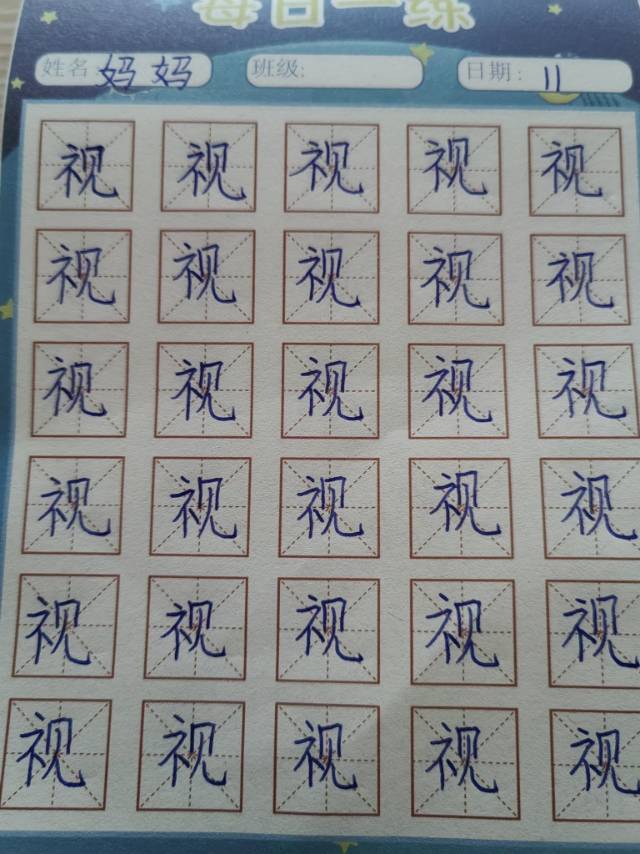 每日一练
姓名 妈妈 班级: 日期: 11
视 视 视 视 视
视 视 视 视 视
视 视 视 视 视
视 视 视 视 视
视 视 视 视 视
视 视 视 视 视